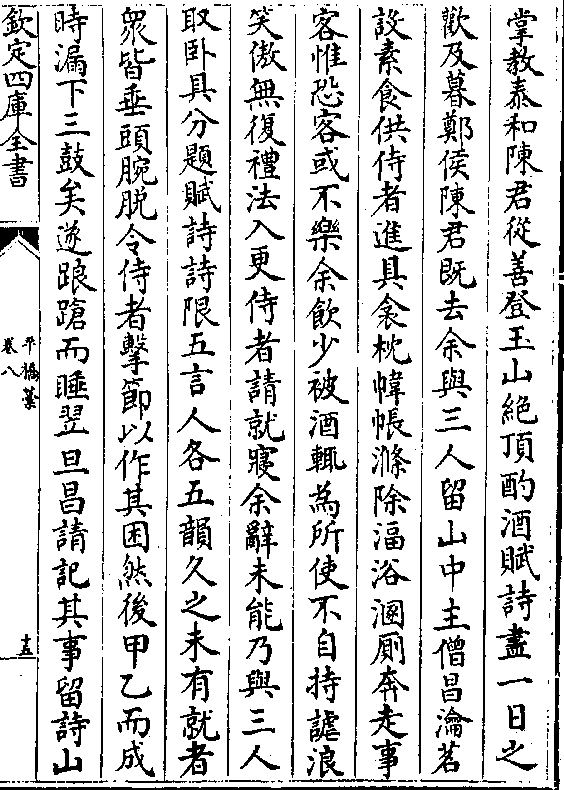 掌教泰和陳君從善登玉山絶頂酌酒賦詩盡一日之
歡及暮鄭侯陳君既去余與三人留山中主僧昌瀹茗
設素食供侍者進具衾枕幃帳滌除湢浴溷厠奔走事
客惟恐客或不樂余飲少被酒輒為所使不自持謔浪
笑傲無復禮法入更侍者請就寢余辭未能乃與三人
取卧具分題賦詩詩限五言人各五韻久之未有就者
衆皆垂頭腕脱令侍者擊節以作其困然後甲乙而成
時漏下三鼓矣遂踉蹌而睡翌旦昌請記其事留詩山
欽定四庫全書
平橋藁
卷八
十五